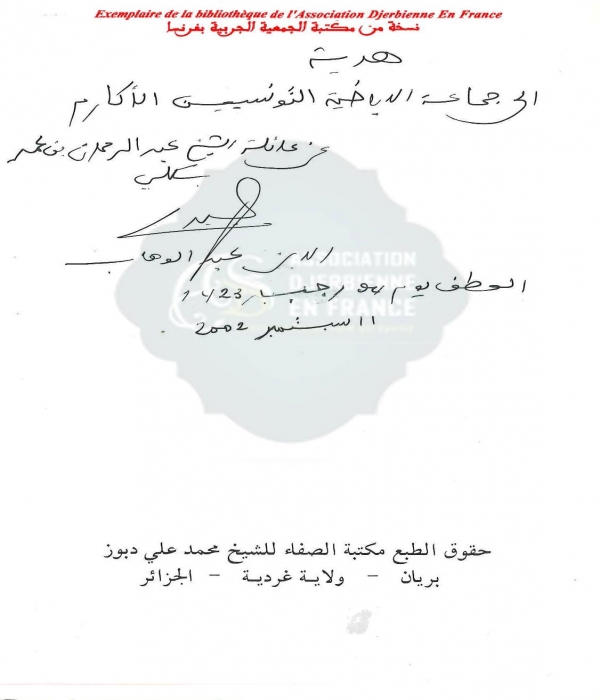 Exemplaire de la bibliothèque de l'Association Djerbienne En France
نسخة من مكتبة الجمعية الجربية بفرنسا
هدية
الى جماعة الاباضية التونسيين الأكارم
من عائلة الشيخ عبد الرحمان بن عمر
بكلي
الابن عبد الوهاب
العطف يوم 04 رجب 1423
11 سبتمبر 2002
ASSOCIATION
DJERBIENNE
EN FRANCE
حقوق الطبع مكتبة الصفاء للشيخ محمد علي دبوز
بريان - ولاية غرداية - الجزائر